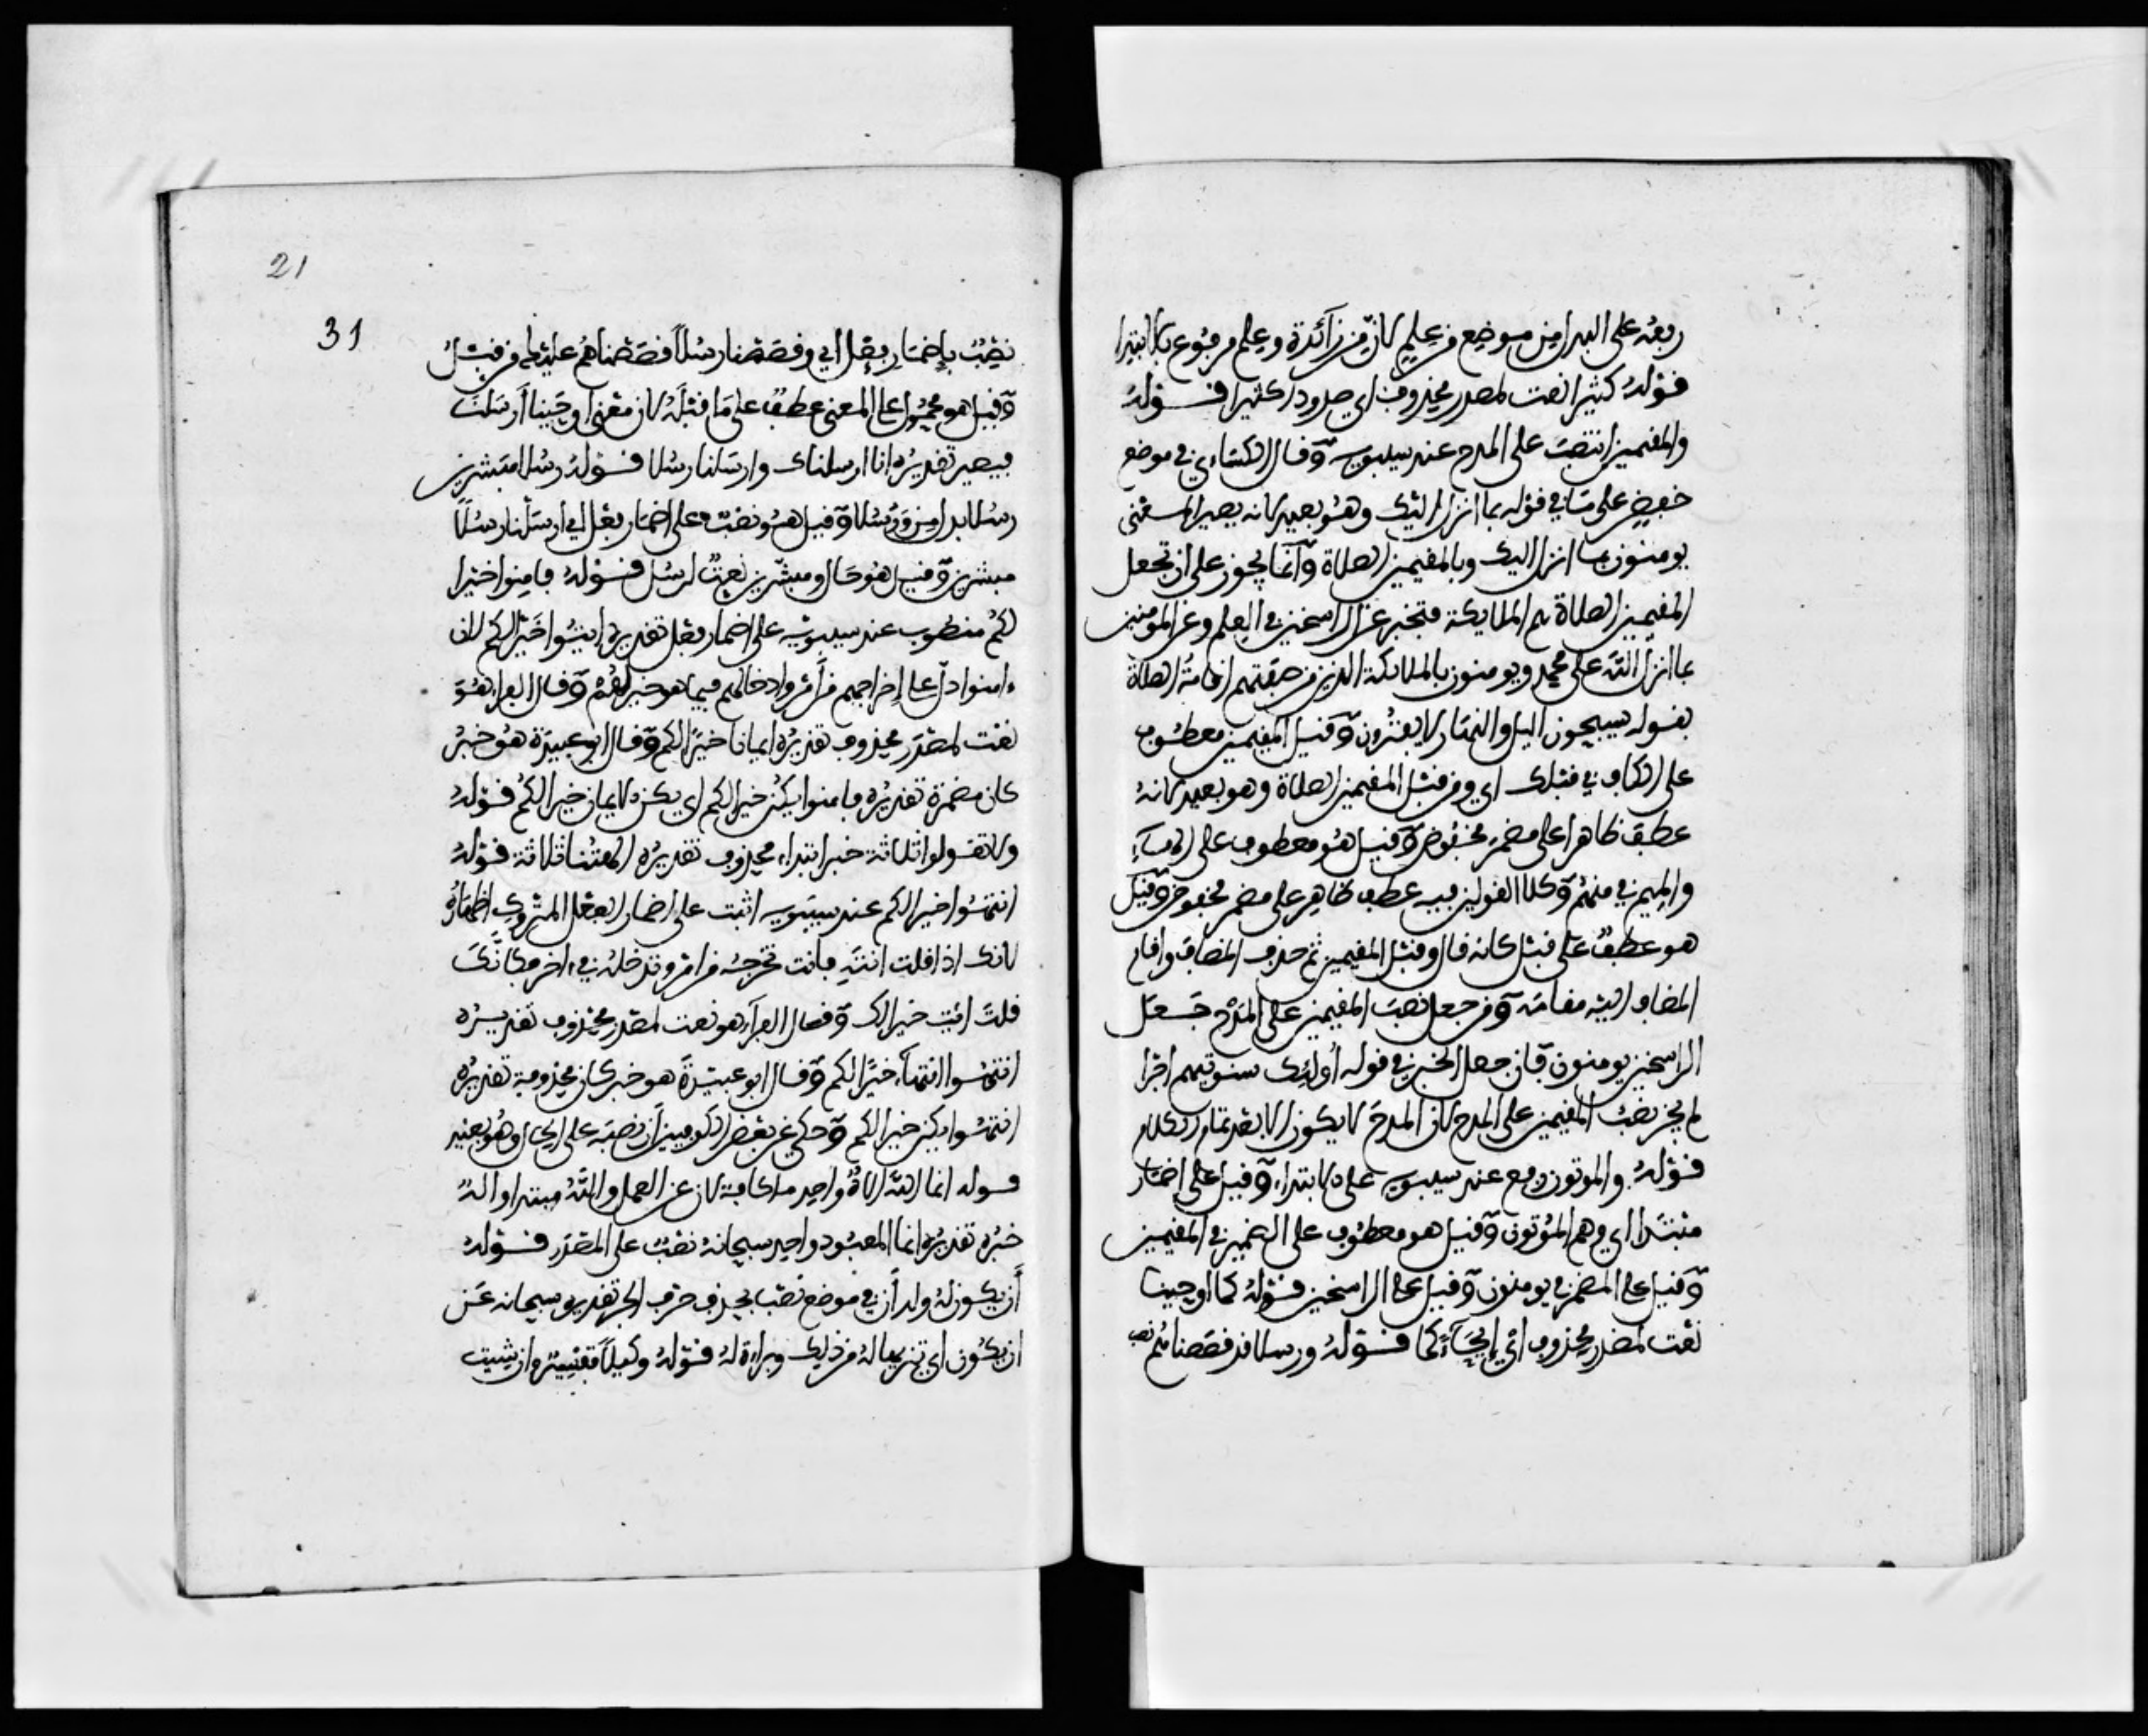 رفعه على البدل من موضع من علم لان من زائدة وعلم مرفوع بالابتداء
قوله كثيرا نعت لمصدر محذوف اي صدودا كثيرا قوله
والمقيمين انتصب على المدح عند سيبويه وقال الكسائي في موضع
خفض على ما في قوله بما انزل اليك وهو بعيد لانه يصير المعنى
يومنون بما انزل اليك وبالمقيمين الصلاة وانما يجوز على ان تجعل
المقيمين الصلاة هم الملايكة فتخبر عن الراسخين في العلم وعن المومنين
بما انزل الله على محمد ويومنون بالملايكة الذين من صفتهم اقامة الصلاة
لقوله يسبحون اليل والنهار لا يفترون وقيل المقيمين معطوف
على الكاف في قبلك اي ومن قبل المقيمين الصلاة وهو بعيد لانه
عطف ظاهرا على مضمر مخفوض وقيل هو معطوف على الهاء
والميم في منهم وكلا القولين فيه عطف ظاهر على مضمر مخفوض وقيل
هو عطف على قبل كانه قال وقبل المقيمين ثم حذف المضاف واقام
المضاف اليه مقامه ومن جعل نصب المقيمين على المدح جعل
الراسخين يومنون فان جعل الخبر في قوله أولئك سنوتيهم اجرا
لم يجز نصب المقيمين على المدح لان المدح لا يكون الا بعد تمام الكلام
قوله والموتون رفع عند سيبويه على الابتداء وقيل على اضمار
مبتدا اي وهم الموتون وقيل هو معطوف على الضمير في المقيمين
وقيل على المضمر في يومنون وقيل على الراسخين قوله كما اوحينا
نعت لمصدر محذوف اي إيحاءً كما قوله ورسلا قد قصصناهم نصب
21
31
نصب بإضمار فعل اي وقصصنا رسلاً قصصناهم عليك من قبل
وقيل هو محمول على المعنى عطف على ما قبله لان معنى اوحينا أرسلنا
فيصير تقديره انا ارسلناك وارسلنا رسلا قوله رسلا مبشرين
رسلا بدل من ورسلا وقيل هو نصب على اضمار فعل اي ارسلنا رسلاً
مبشرين وقيل هو حال ومبشرين نعت لرسل قوله فامنوا خيرا
لكم منصوب عند سيبويه على اضمار فعل تقديره ايتوا خيرا لكم لان
ءامنوا دل على إخراجهم من أمر وادخالهم فيما هو خير لهم وقال الفراء هو
نعت لمصدر محذوف تقديره ايمانا خيرًا لكم وقال ابو عبيدة هو خبر
كان مضمرة تقديره فامنوا يكن خيرا لكم اي يكن الايمان خيرا لكم قوله
ولا تقولوا ثلاثة خبر ابتداء محذوف تقديره الهتنا ثلاثة قوله
انتهوا خيرا لكم عند سيبويه انتصب على اضمار الفعل المتروك إظهاره
لانك اذا قلت انته فانت تخرجه من امر وتدخله في ءاخر فكانك
قلت ائت خيرا لك وقال الفراء هو نعت لمصدر محذوف تقديره
انتهوا انتهاءً خيرًا لكم وقال ابو عبيدة هو خبر كان محذوفة تقديره
انتهوا يكن خيرا لكم وحكي عن بعض الكوفيين أن نصبه على الحال وهو بعيد
قوله انما الله الاه واحد ما كافة لان عن العمل والله مبتدا واله
خبره تقديره انما المعبود واحد سبحانه نصب على المصدر قوله
أن يكون له ولد أن في موضع نصب بحذف حرف الجر تقديره سبحانه عن
ان يكون اي تنزيها له من ذلك وبراءة له قوله وكيلاً تفسير وان شيت